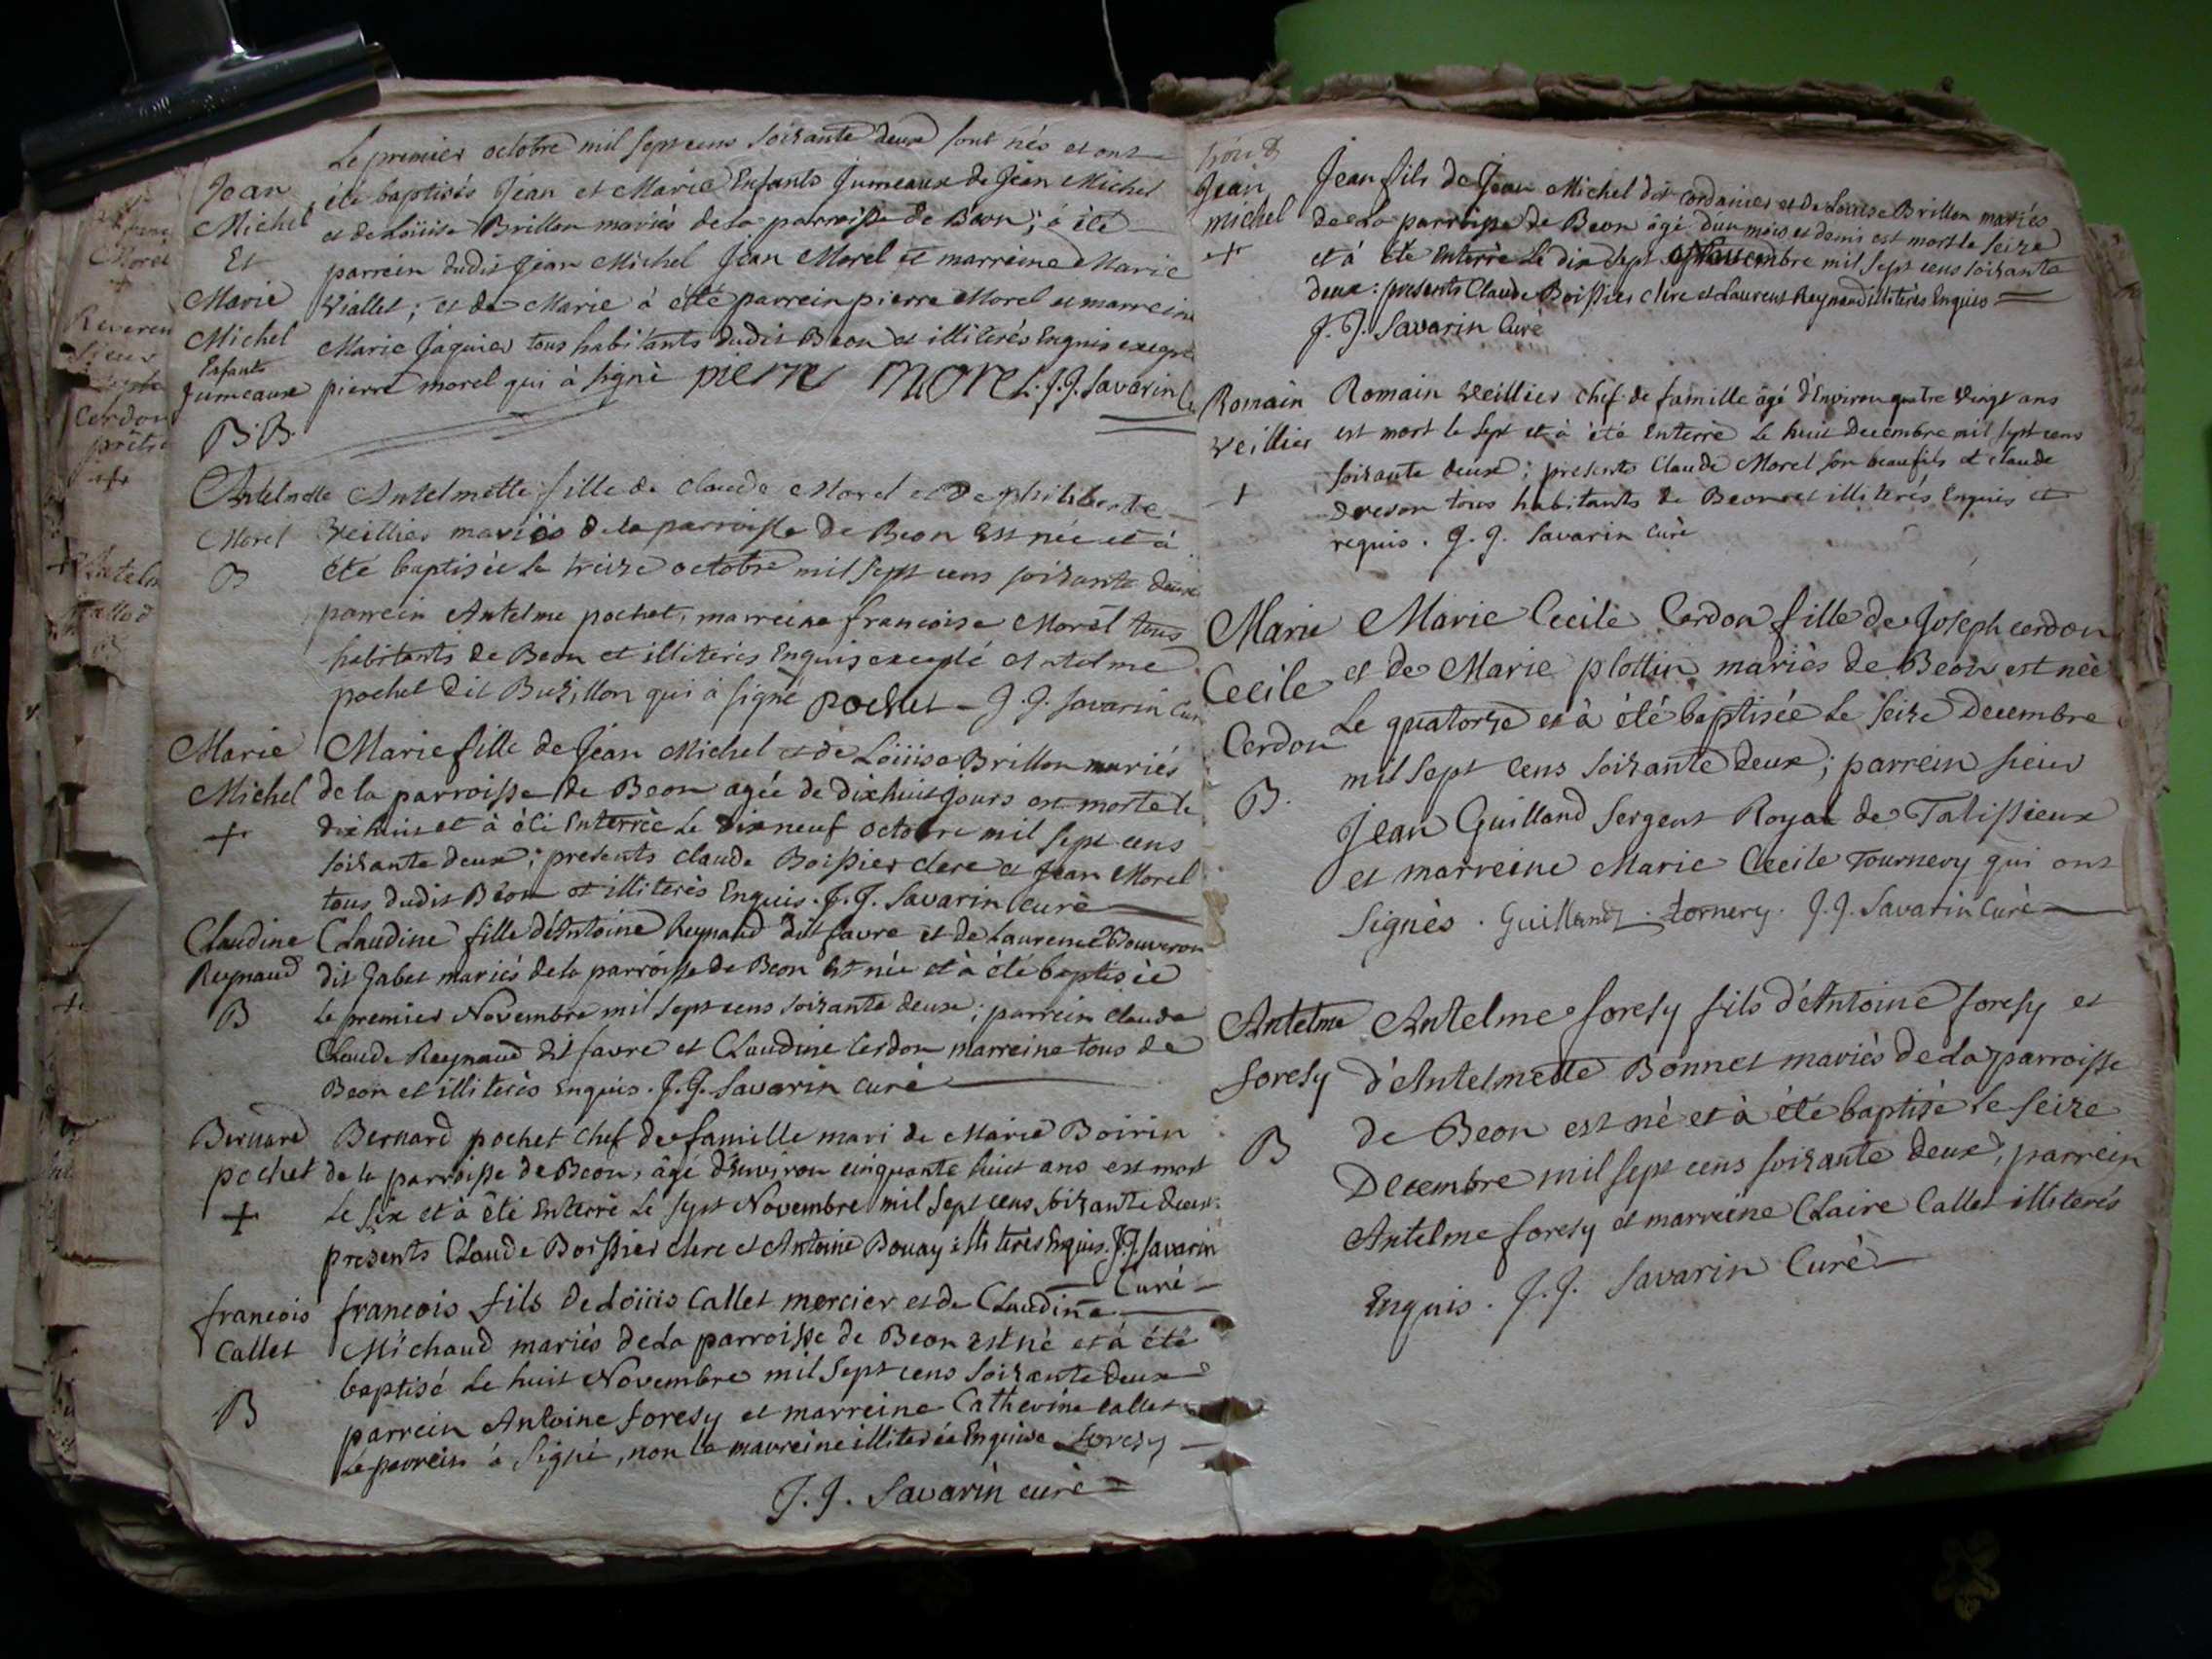 Le premier octobre mil sept cens soixante deux sont nés et ont
Jean
Michel
Et
Marie
Michel
Enfants
Jumeaux
B. B.
été baptisés Jean et Marie Enfants Jumeaux de Jean Michel
et de Loüise Brillon mariés de la parroisse de Beon; à été
parrein dudit Jean Michel Jean Morel et marreine Marie
Viallet; et de Marie à été parrein pierre Morel et marreine
Marie Jaquier tous habitants dudit Beon et illiterés Enquis excepté
pierre morel qui à signé pierre morel. J. J. Savarin Cu
Antelmette
Morel
B
Antelmette fille de claude Morel et de philiberte
Veillier mariés de la parroisse de Beon Est née et à
été baptisée le treize octobre mil sept cens soixante deux
parrein Antelme pochet, marreine francoise Morel tous
habitants de Beon et illiterés Enquis excepté Antelme
pochet dit Buzillon qui à signé pochet - J. J. Savarin Cur
Marie
Michel
+
Marie fille de Jean Michel et de Loüise Brillon mariés
de la parroisse de Beon agée de dixhuit jours est morte le
dixhuit et à été Enterrée Le dixneuf octobre mil sept cens
soixante deux; presents claude Boissier clerc et Jean Morel
tous dudit Beon et illiterés Enquis. J. J. Savarin Curé
Claudine
Reynaud
B
Claudine fille d'Antoine Reynaud dit favre et de Laurence Bouveron
dit Gabet mariés de la parroisse de Beon Est née et à été baptisée
le premier Novembre mil sept cens soixante deux; parrein claude
Claude Reynaud dit favre et Claudine Cerdon marreine tous de
Beon et illiterés Enquis. J. J. Savarin curé
Bernard
pochet
+
Bernard pochet Chef de famille mari de Marie Boirin
de la parroisse de Beon, âgé d'Environ cinquante huit ans est mort
Le six et à été Enterré Le sept Novembre mil Sept cens soixante deux.
presents Claude Boissier clerc et Antoine Bouay illiterés Enquis. J. J. Savarin
Curé
francois
Callet
B
francois fils de Loüis Callet mercier et de Claudine
Michaud mariés de La parroisse de Beon Est né et à été
baptisé Le huit Novembre mil Sept cens Soixante deux
parrein Antoine foresy et marreine Catherine callet
Le parrein à Signé, non la marreine illiterée Enquise foresy
J. J. Savarin curé
Jean
michel
+
Jean fils de Jean Michel dit Cordanier et de Louise Brillon mariés
de La parroisse de Beon âgé d'un mois et demis est mort le seize
et à été Enterré Le dix sept Novembre mil sept cens soixante
deux: presents Claude Boissier clerc et Laurent Reynaud illiterés Enquis
J. J. Savarin Curé
Romain
Veillier
+
Romain Veillier chef de famille âgé d'Environ quatre Vingt ans
est mort le sept et à été Enterré Le huit Decembre mil sept cens
soixante deux; presents Claude Morel son beaufils et claude
tous habitants de Beon et illiterés Enquis et
requis. J. J. Savarin Curé
Marie
Cecile
Cerdon
B.
Marie Cecile Cerdon fille de Joseph cerdon
et de Marie plottin mariés de Beon est née
Le quatorze et à été baptisée Le seize Decembre
mil Sept Cens Soixante deux; parrein sieur
Jean Guilland Sergent Royal de Talissieux
et marreine Marie Cecile Tournery qui ont
Signés. Guilland. tornery. J. J. Savarin Curé
Antelme
foresy
B
Antelme foresy fils d'Antoine foresy et
d'Antelmette Bonnet mariés de La parroisse
de Beon est né et à été baptisé Le seize
Decembre mil sept cens soixante deux, parrein
Antelme foresy et marreine Claire Callet illiterés
Enquis. J. J. Savarin Curé